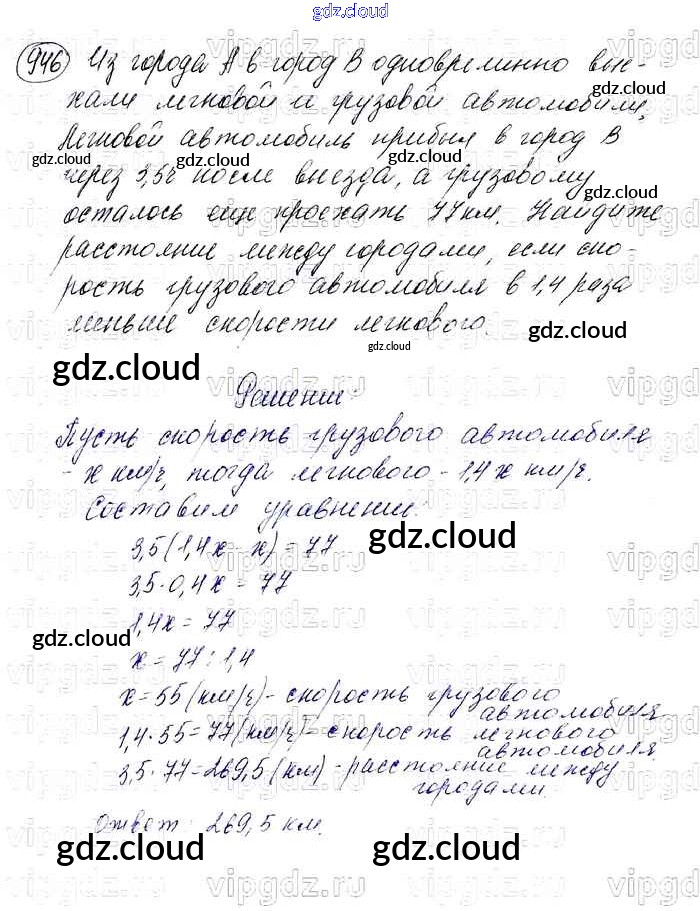 gdz.cloud
946 Из города А в город В одновременно вые-
хали легковой и грузовой автомобили.
Легковой автомобиль прибыл в город В
gdz.cloud gdz.cloud gdz.cloud
через 3,5ч после выезда, а грузовому
gdz.cloud
осталось еще проехать 77км. Найдите
расстояние между городами, если ско-
рость грузового автомобиля в 1,4 раза
gdz.cloud
меньше скорости легкового.
gdz.cloud
gdz.cloud
gdz.cloud
Решение:
Пусть скорость грузового автомобиля
- х км/ч, тогда легкового - 1,4х км/ч.
Составим уравнение:
3,5(1,4х - х) = 77
gdz.cloud
3,5·0,4х = 77
1,4х = 77
gdz.cloud
х = 77 : 1,4
х = 55 (км/ч) - скорость грузового
автомобиля.
1,4·55 = 77 (км/ч) - скорость легкового
автомобиля.
3,5·77 = 269,5 (км) - расстояние между
городами.
Ответ: 269,5 км.
gdz.cloud gdz.cloud
vipgdz.ru vipgdz.ru vipgdz.ru